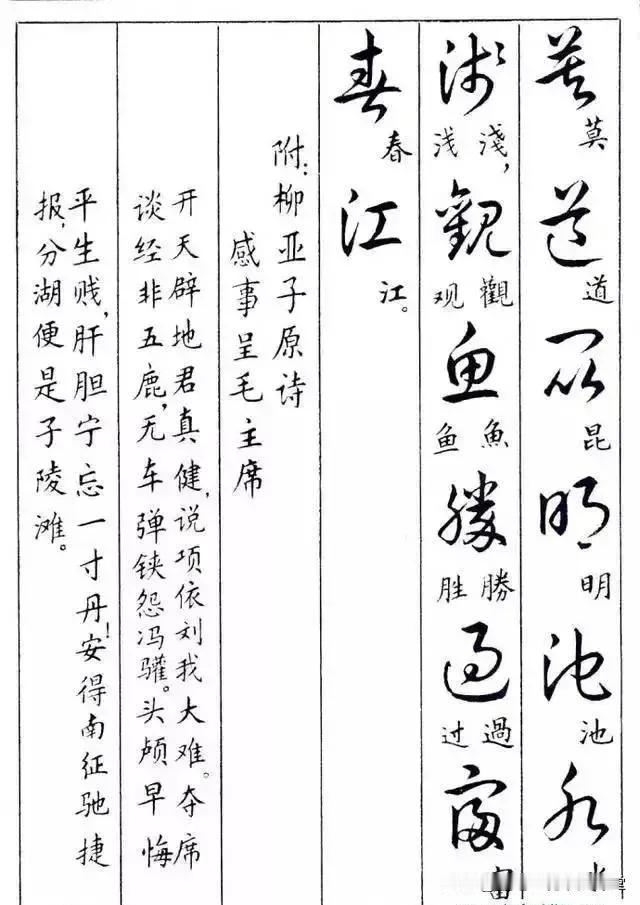 莫道昆明池水
莫道昆明池水
浅觀鱼勝過富
浅淺,观觀鱼魚胜勝过過
春江
春江。
附:柳亚子原诗
感事呈毛主席
开天辟地君真健,说项依刘我大难。夺席
谈经非五鹿,无车弹铗怨冯驩。头颅早悔
平生贱,肝胆宁忘一寸丹!安得南征驰捷
报,分湖便是子陵滩。